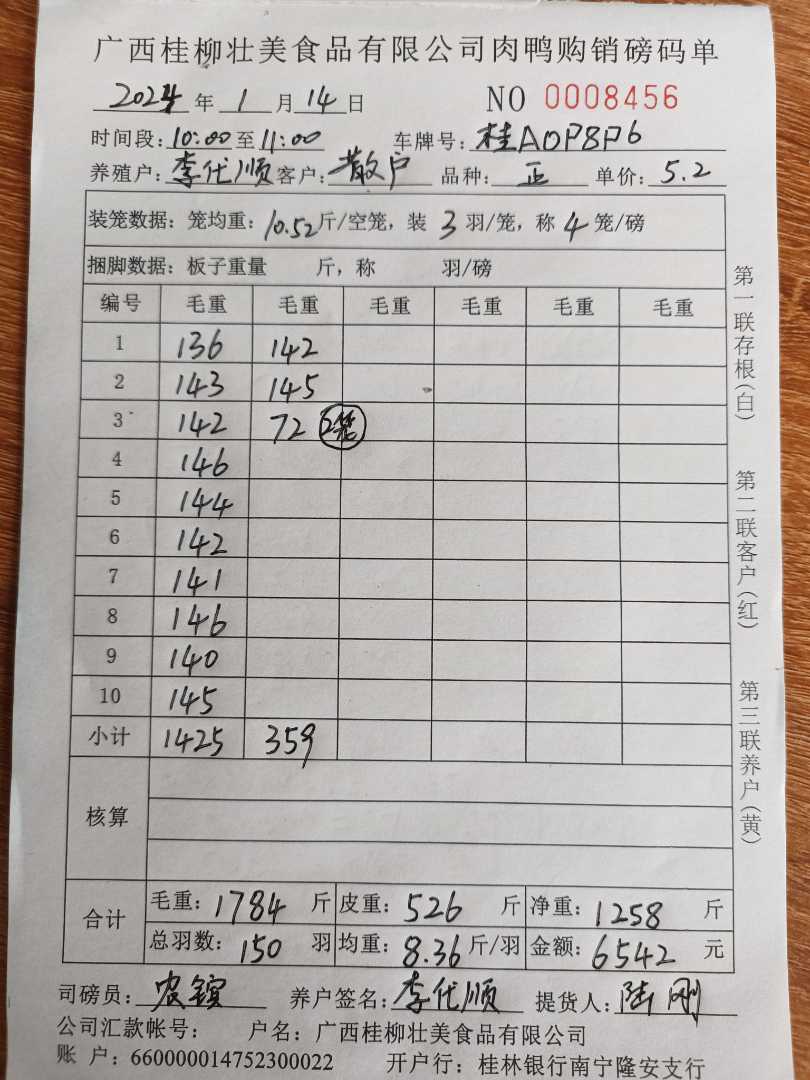 广西桂柳壮美食品有限公司肉鸭购销磅码单
2024 年 1 月 14 日 NO 0008456
时间段: 10:00 至 11:00 车牌号: 桂A0P8P6
养殖户: 李代顺 客户: 散户 品种: 正 单价: 5.2
装笼数据: 笼均重: 10.52 斤/空笼, 装 3 羽/笼, 称 4 笼/磅
捆脚数据: 板子重量 斤, 称 羽/磅
编号 毛重 毛重 毛重 毛重 毛重 毛重
1 136 142
2 143 145
3 142 72 2笼
4 146
5 144
6 142
7 141
8 146
9 140
10 145
小计 1425 359
核算
合计
毛重: 1784 斤 皮重: 526 斤 净重: 1258 斤
总羽数: 150 羽 均重: 8.36 斤/羽 金额: 6542 元
司磅员: 农镔 养户签名: 李代顺 提货人: 陆刚
公司汇款帐号: 户名: 广西桂柳壮美食品有限公司
账 户: 660000014752300022 开户行: 桂林银行南宁隆安支行
第一联存根(白)
第二联客户(红)
第三联养户(黄)